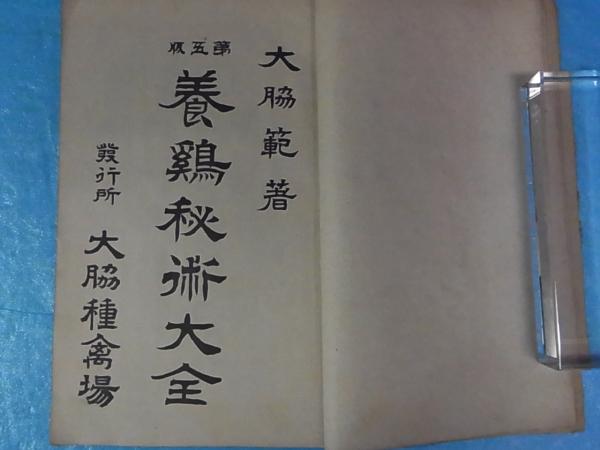 大脇範著
第五版
養鷄秘術大全
發行所
大脇種禽場